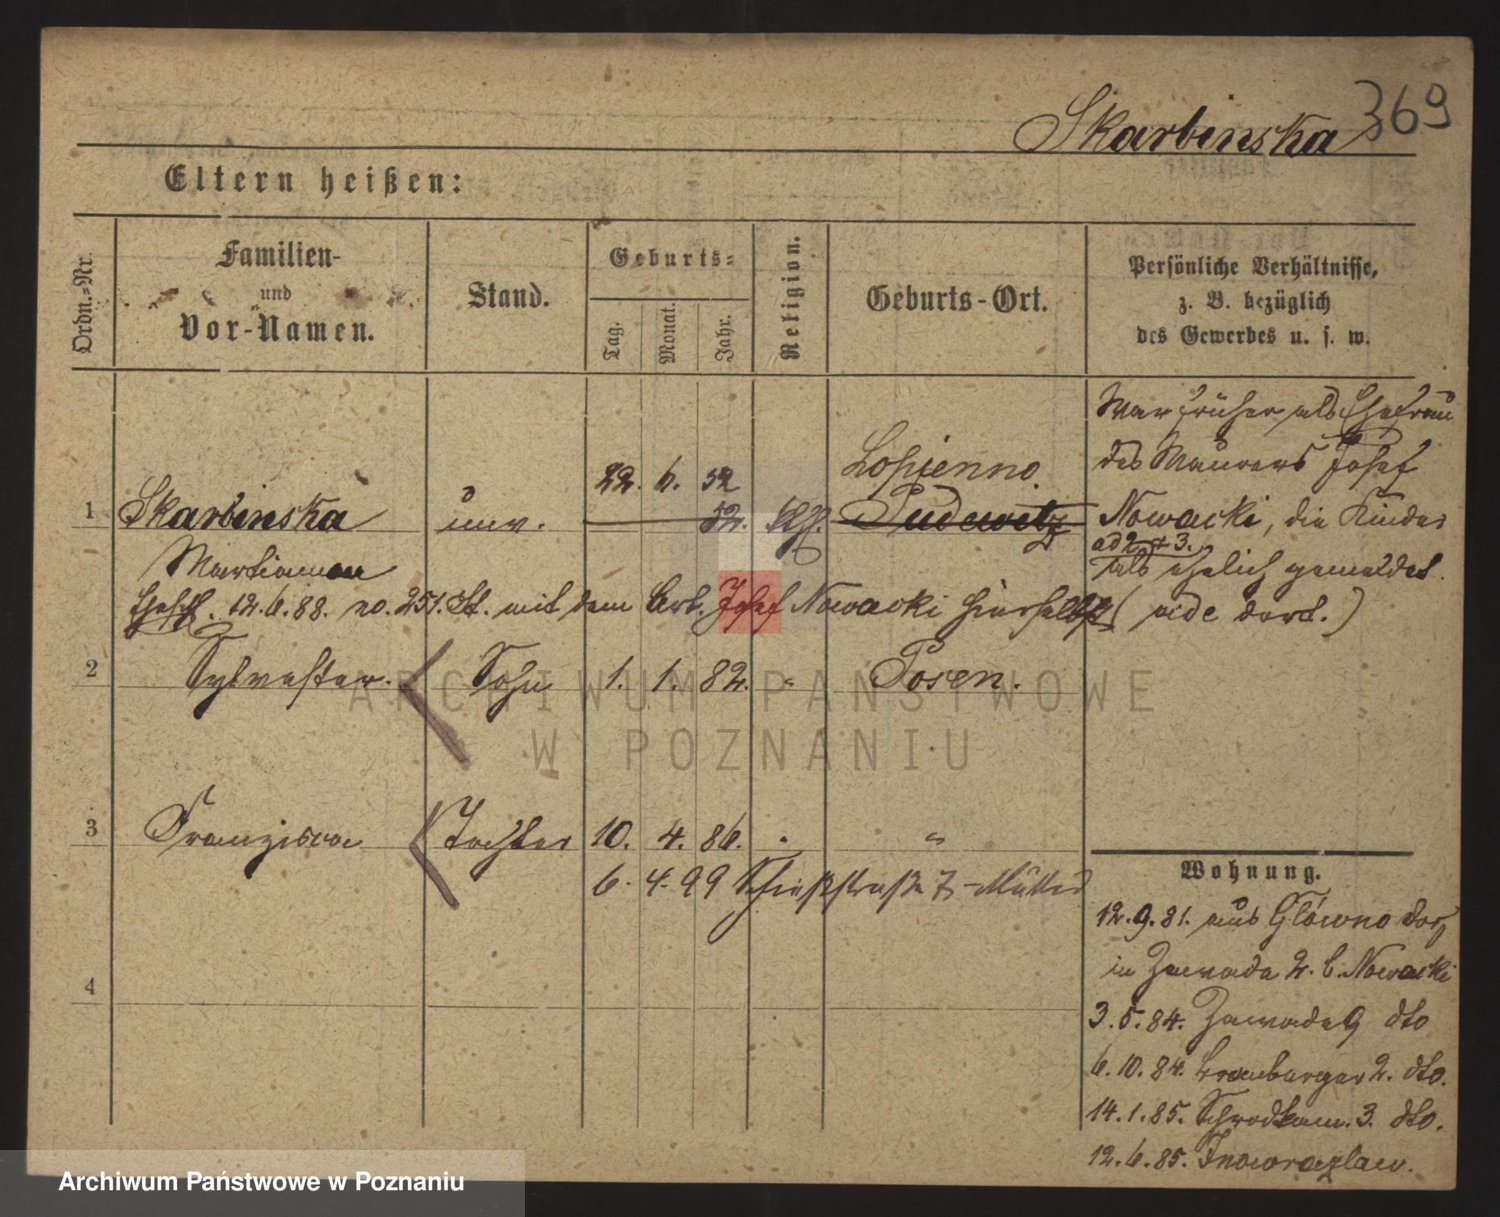 369
Skarbinska
Eltern heißen:
Ordn.-Nr.
Familien-
und
Vor-Namen.
Stand.
Geburts-
Tag.
Monat.
Jahr.
Religion.
Geburts-Ort.
Persönliche Verhältnisse,
z. B. bezüglich
des Gewerbes u. s. w.
War früher als Ehefrau
des Maurers Josef
Nowacki, die Kinder
ad 2 + 3.
als ehelich gemeldet.
22. 6. 52 Lopienno.
1 Skarbinska unv. 52. kth. Pudewitz
Marianna
12.6.88. no. 251. St. mit dem Arb. Josef Nowacki hierselbst (vide dort.)
2 Sylvester. Sohn 1. 1. 82. " Posen.
3 Franziska Tochter 10. 4. 86. " "
6. 4. 99 Schießstraße 7 Mutter
4
Wohnung.
12.9.81. aus Główno Dorf
in Zawada 2. b. Nowacki
3.5.84. Zawade 9 dto
6.10.84. 2. dto.
14.1.85. Schrodkam. 3. dto.
12.6.85. Inowrazlaw.
ARCHIWUM PAŃSTWOWE
W POZNANIU
Archiwum Państwowe w Poznaniu